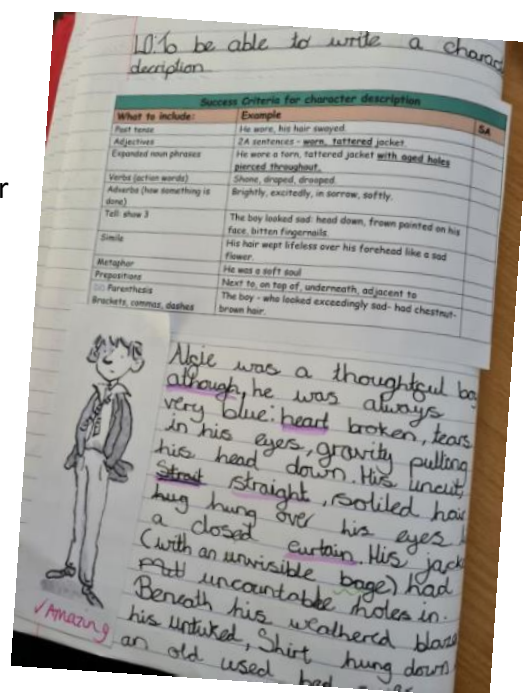 r
LO: To be able to write a charac
decription
Success Criteria for character description
What to include: Example SA
Past tense He wore, his hair swayed.
Adjectives 2A sentences - worn, tattered jacket.
Expanded noun phrases He wore a torn, tattered jacket with aged holes
pierced throughout.
Verbs (action words) Shone, draped, drooped.
Adverbs (how something is Brightly, excitedly, in sorrow, softly.
done)
Tell: show 3 The boy looked sad: head down, frown painted on his
face, bitten fingernails.
Simile His hair wept lifeless over his forehead like a sad
flower.
Metaphor He was a soft soul
Prepositions Next to, on top of, underneath, adjacent to
Parenthesis The boy - who looked exceedingly sad- had chestnut-
Brackets, commas, dashes brown hair.
was a thoughtful bo
although, he was always
very blue: heart broken, tears
in his eyes, gravity pulling
his head down. His uncut,
strait straight, soliled hair
hug hung over his eyes
a closed curtain. His jack
(with an unvisible bage) had
uncountable holes in.
Beneath his weathered blaze
his untuked, Shirt hung down
an old used
✓Amazing